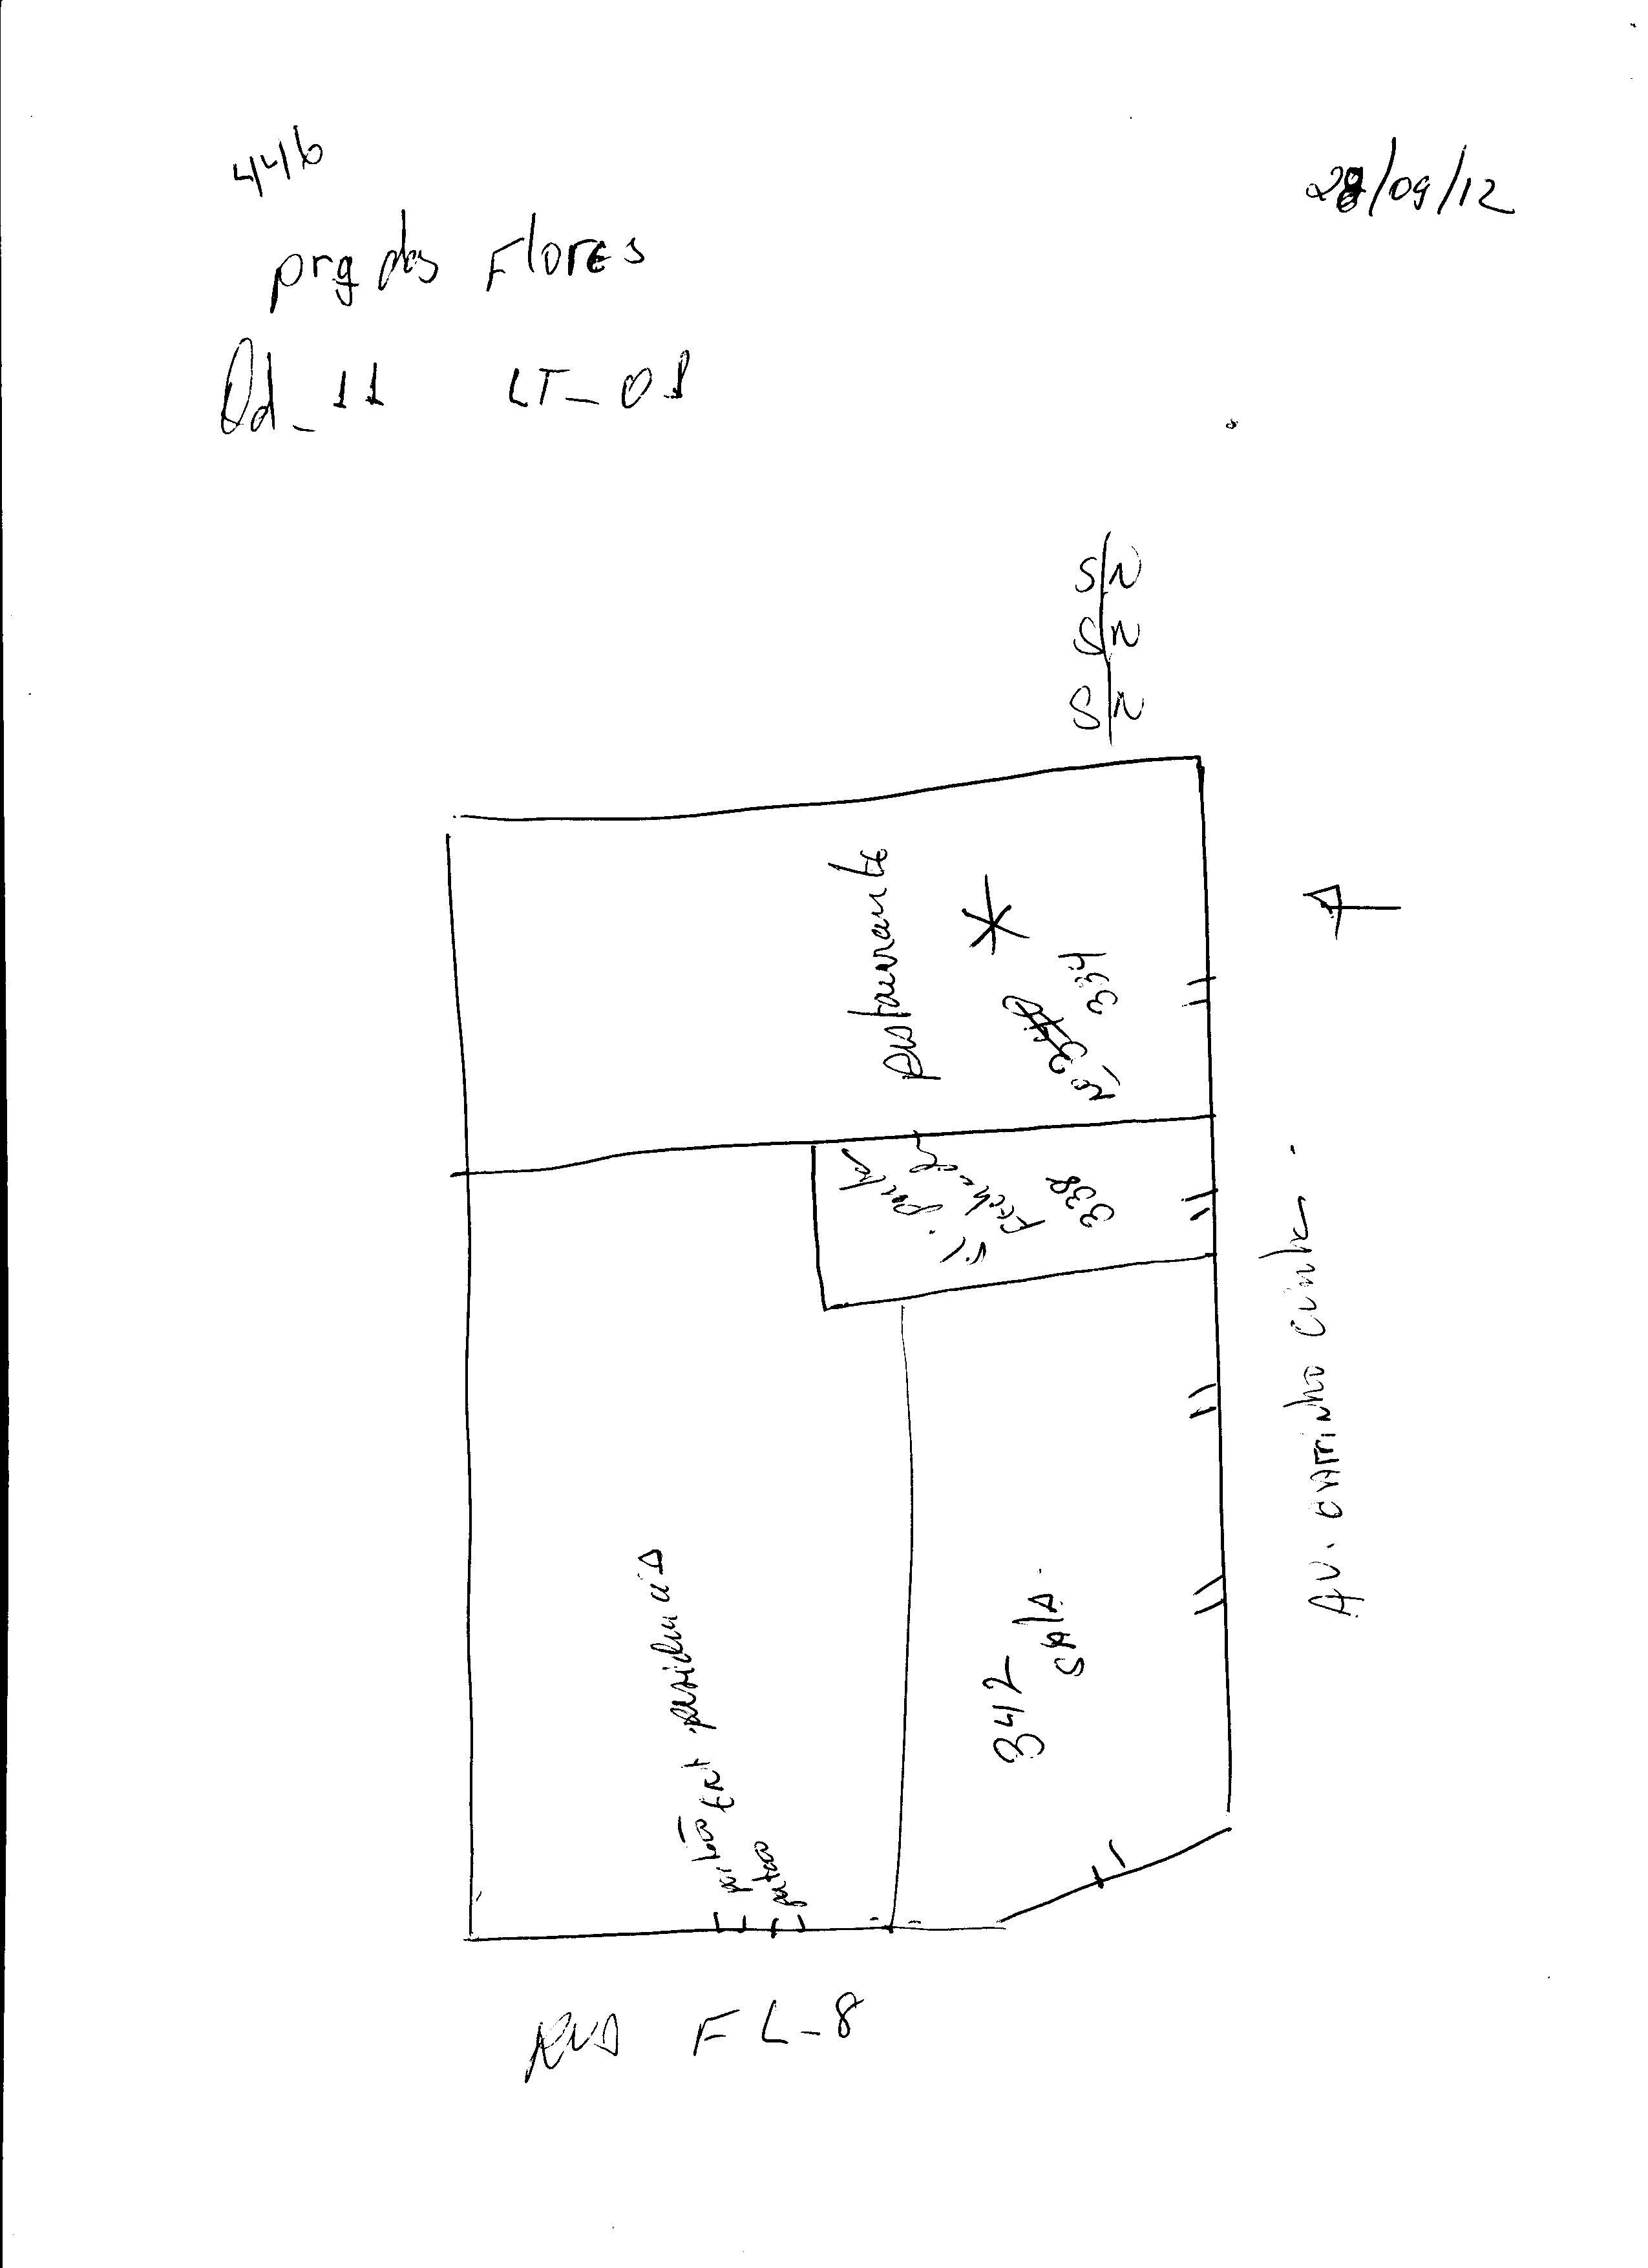 446
28/09/12
prq das Flores
Qd_11 LT_01
S/N
S/N
S/N
restaurante
nº 334
s/
Fechada
338
342
SALA.
portão
portão
Ent
Av.
RUA FL-8